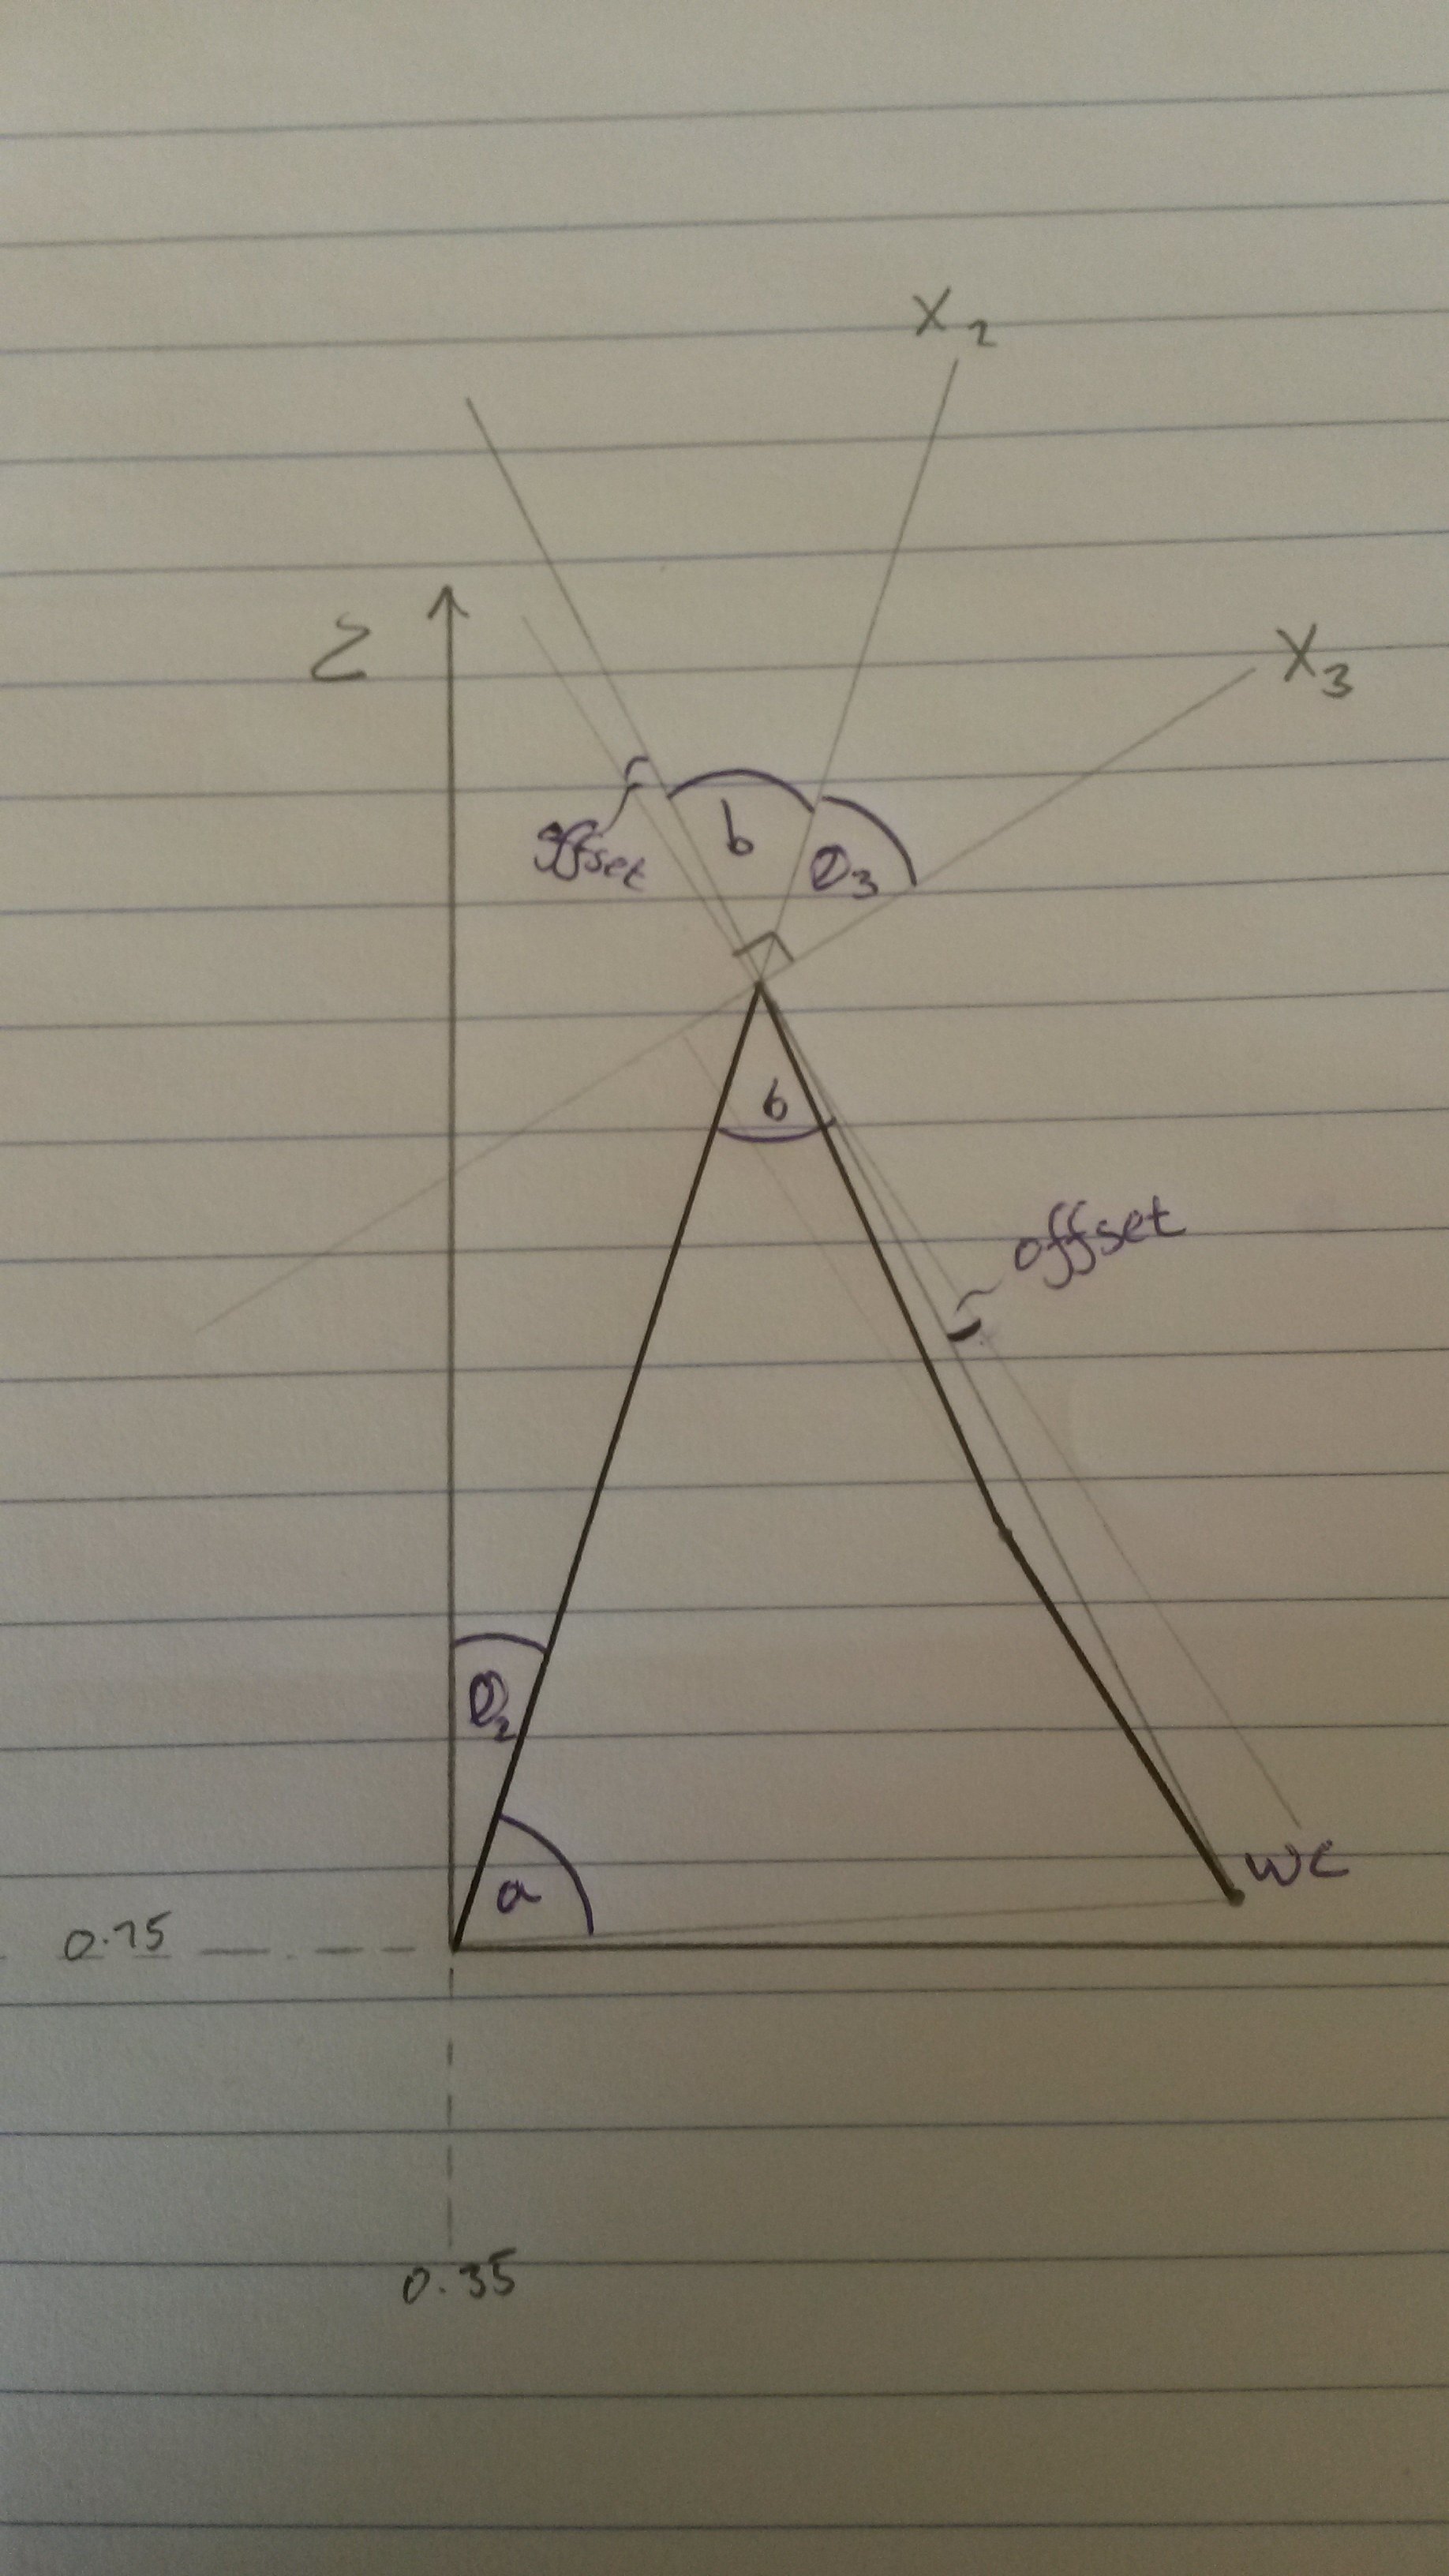 X2
Z
X3
offset
b
θ3
b
offset
θ2
a
WC
0.75
0.35